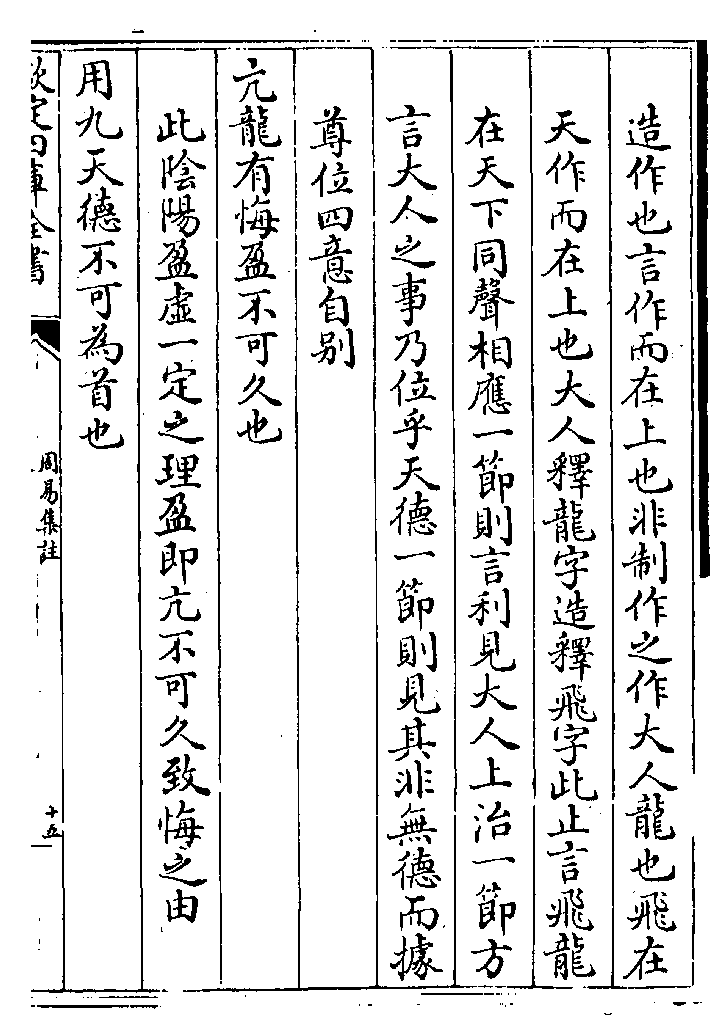 造作也言作而在上也非制作之作大人龍也飛在
天作而在上也大人釋龍字造釋飛字此止言飛龍
在天下同聲相應一節則言利見大人上治一節方
言大人之事乃位乎天德一節則見其非無德而據
尊位四意自别
亢龍有悔盈不可久也
此陰陽盈虛一定之理盈即亢不可久致悔之由
用九天德不可為首也
欽定四庫全書
周易集註
十五